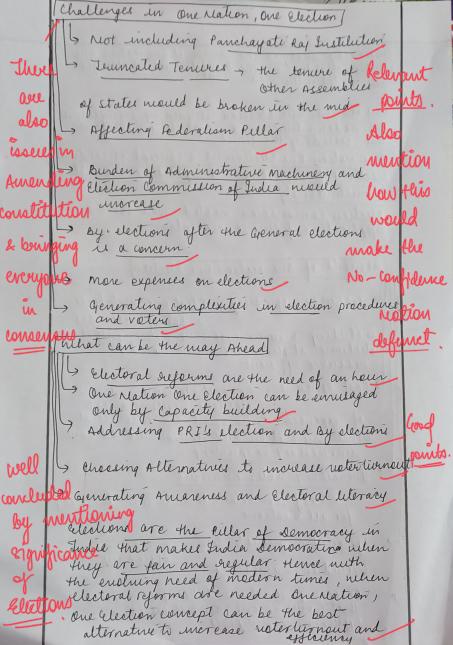 Challenges in One Nation, One Election
Not including Panchayati Raj Institution
Truncated Tenures → the tenure of
other Assemblies
of states would be broken in the mid
Affecting Federalism Pillar
Burden of Administrative machinery and
Election Commission of India would
increase
By-elections after the General elections
is a concern
More expenses on elections
Generating complexities in election procedures
and voters
What can be the way Ahead
Electoral reforms are the need of an hour
One Nation One Election can be envisaged
only by Capacity building
Addressing PRI's election and By elections
Choosing Alternatives to increase voter turnout
Generating Awareness and Electoral literacy
Elections are the Pillar of Democracy in
India that makes India Democratic when
they are fair and regular Hence with
the evolving need of modern times, when
electoral reforms are needed One Nation,
One Election concept can be the best
alternative to increase voter turnout and
efficiency
There
are
also
issues in
Amending
constitution
& bringing
everyone
in
consensus
Relevant
points.
Also
mention
how this
would
make the
No-confidence
motion
defunct.
Good
points.
Well
concluded
By mentioning
significance
of
Elections.